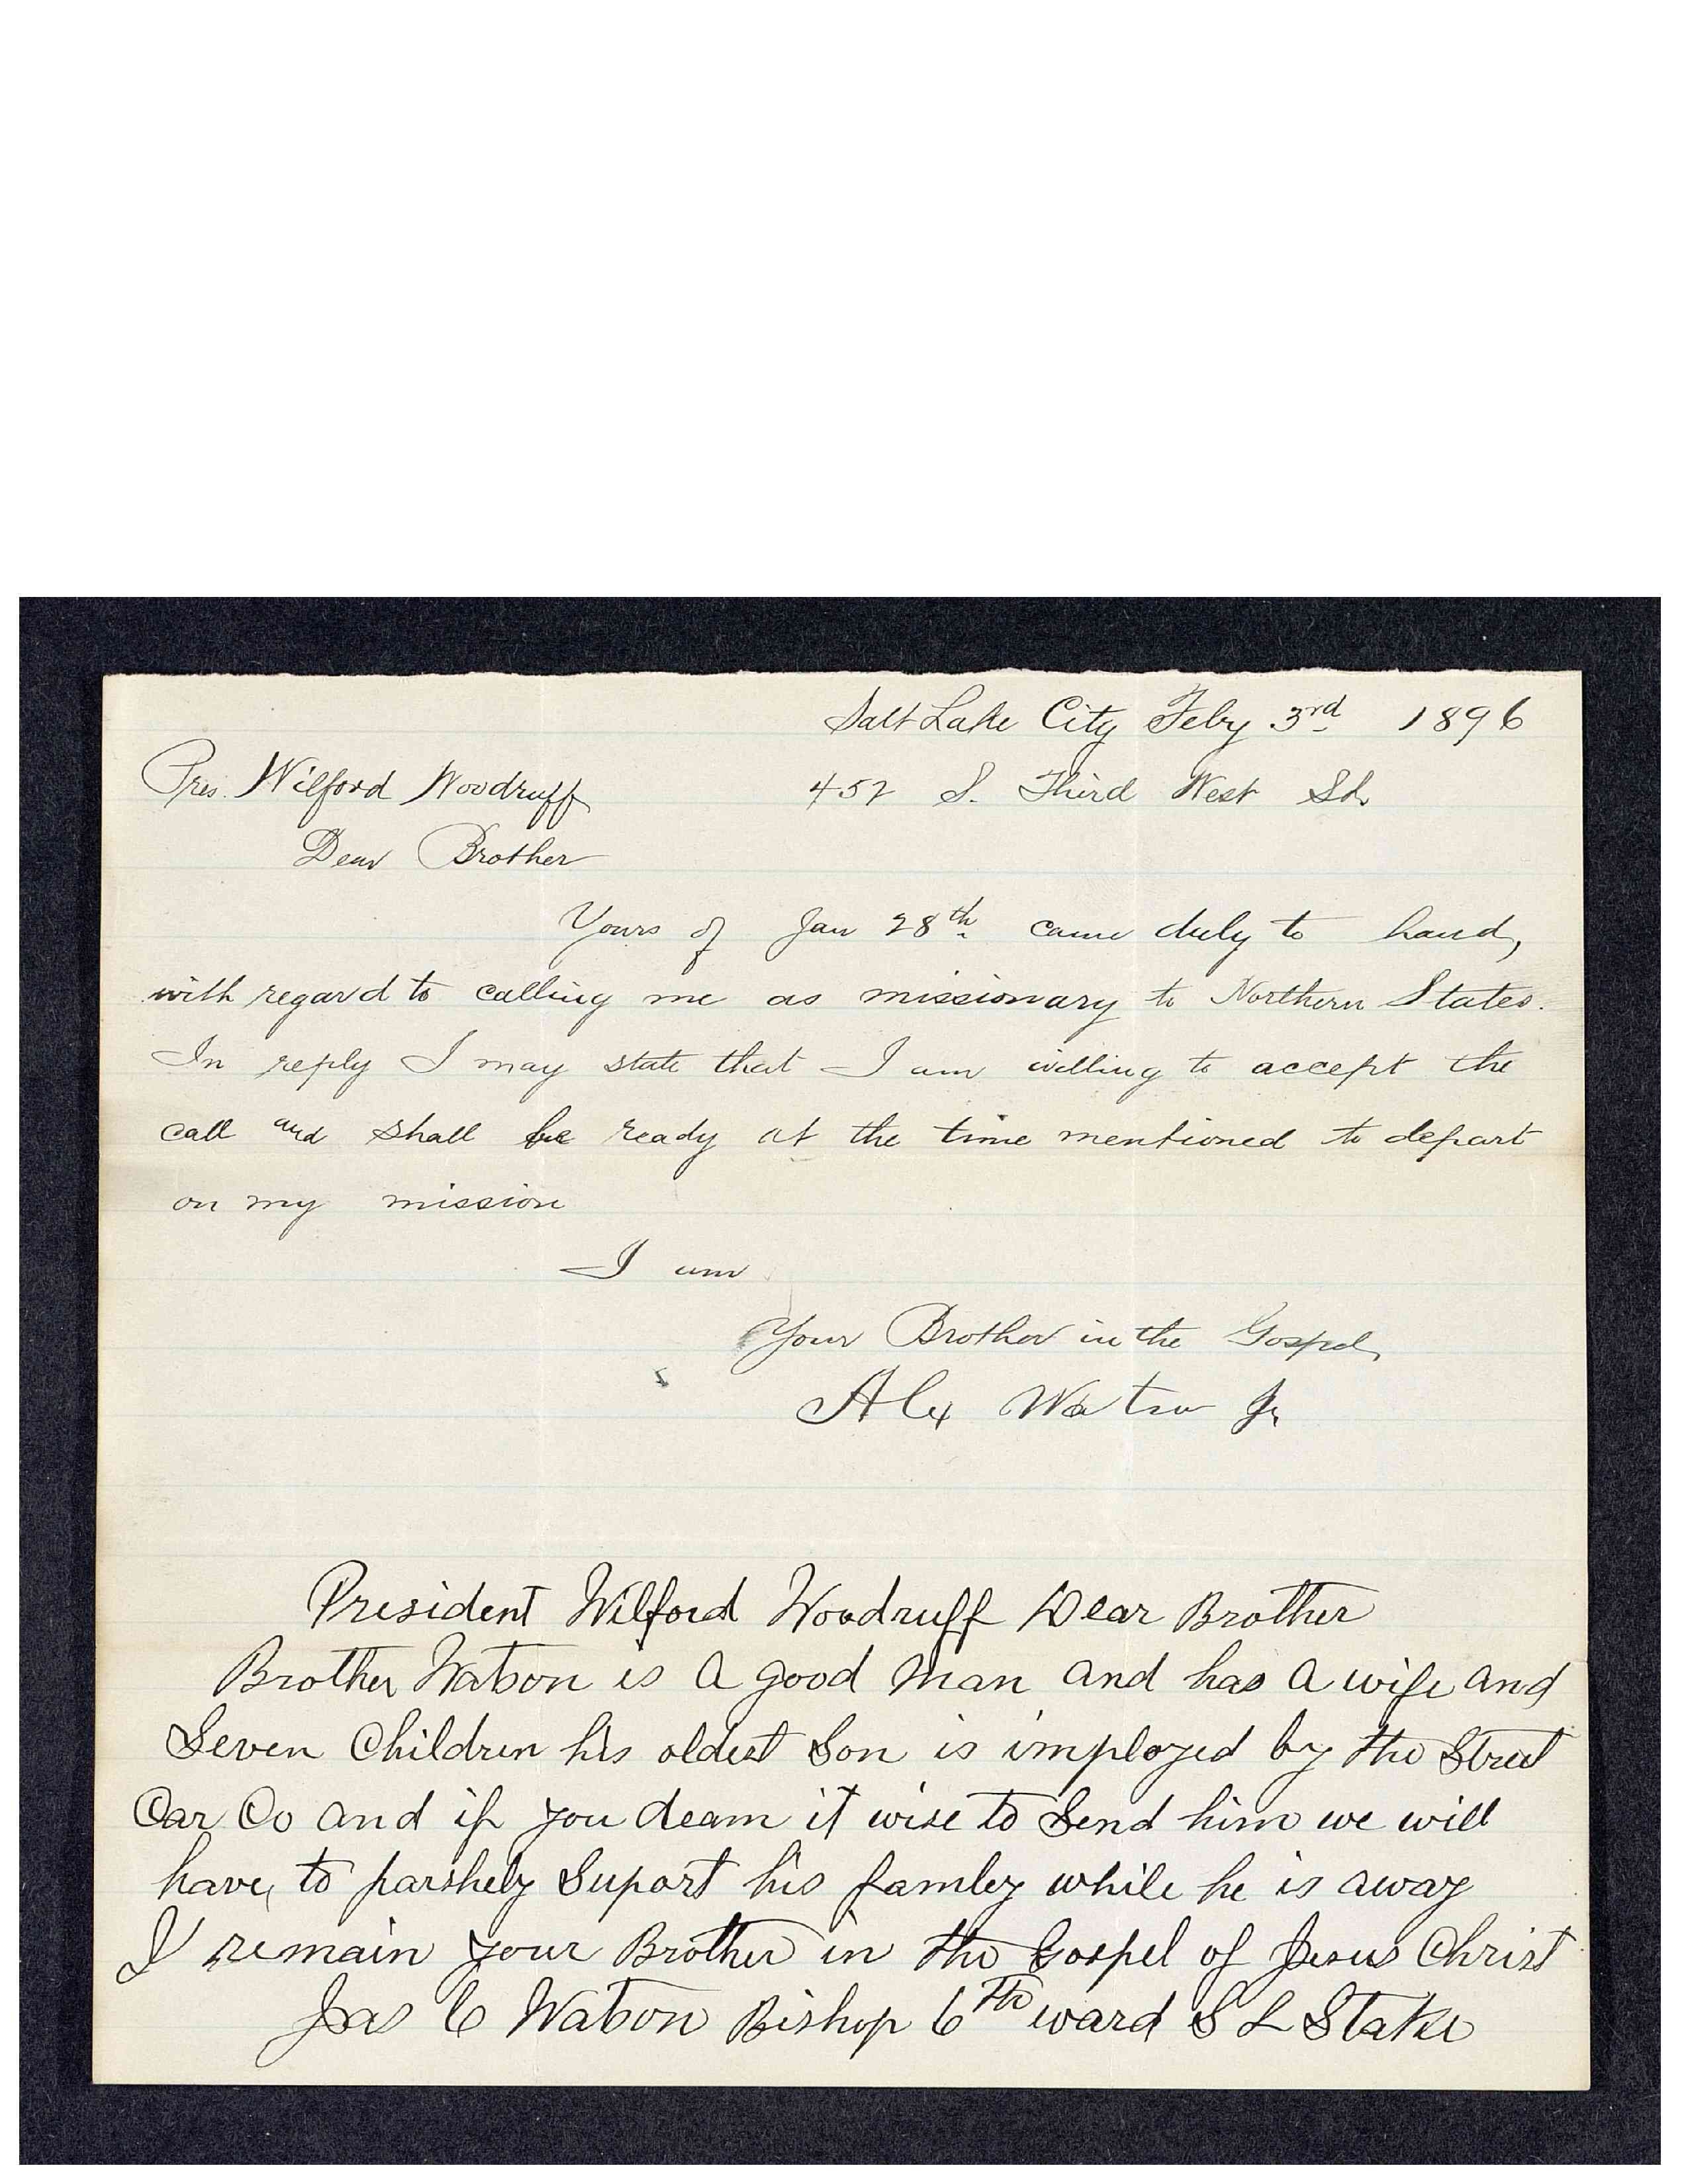 Salt Lake City Feby 3rd 1896
Pres. Wilford Woodruff 452 S. Third West St.
Dear Brother
Yours of Jan 28th came duly to hand,
with regard to calling me as missionary to Northern States.
In reply I may state that I am willing to accept the
call and shall be ready at the time mentioned to depart
on my mission
I am
Your Brother in the Gospel,
Alex Watson Jr
President Wilford Woodruff Dear Brother
Brother Watson is a good man and has a wife and
Seven Children his oldest Son is imployed by the Street
Car Co and if you deam it wise to Send him we will
have, to parshely Suport his famley while he is away
I remain your Brother in the Gospel of Jesus Christ
Jas C Watson Bishop 6th ward S L Stake